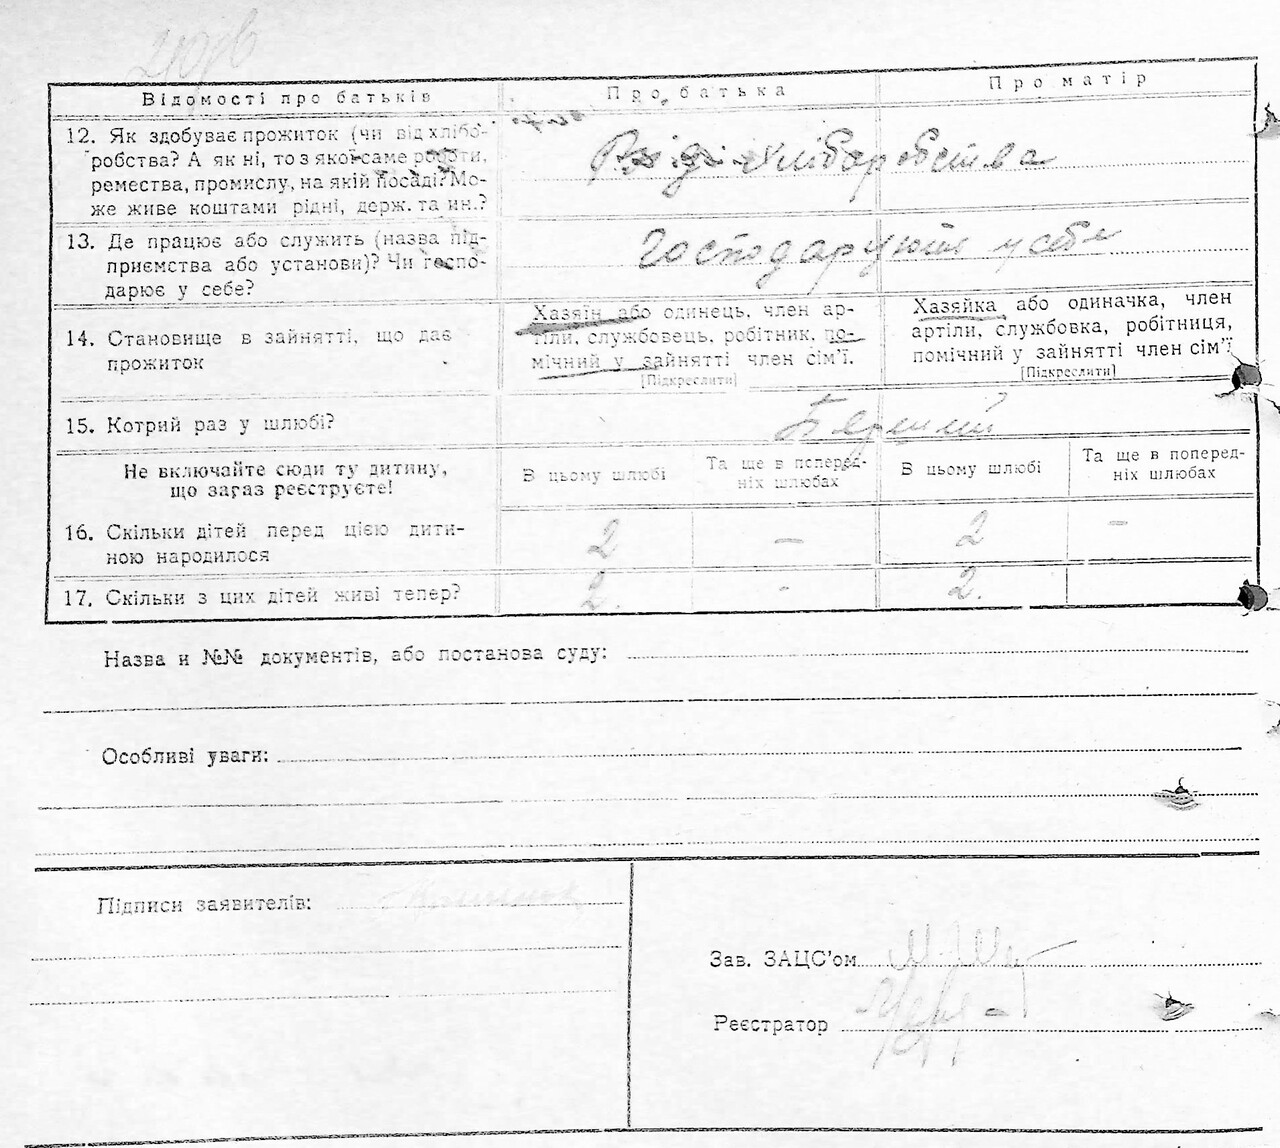 Відомості про батьків
Про батька
Про матір
12. Як здобуває прожиток (чи від хлібо-
робства? А як ні, то з якої саме роботи,
ремества, промислу, на якій посаді? Мо-
же живе коштами рідні, держ. та ин.?
Від хліборобства
13. Де працює або служить (назва під-
приємства або установи)? Чи госпо-
дарює у себе?
Господарують у себе
14. Становище в зайнятті, що дає
прожиток
Хазяїн або одинець, член ар-
тіли, службовець, робітник, по-
мічний у зайнятті член сім'ї.
[Підкреслити]
Хазяйка або одиначка, член
артіли, службовка, робітниця,
помічний у зайнятті член сім'ї
[Підкреслити]
15. Котрий раз у шлюбі?
Перший
Не включайте сюди ту дитину,
що зараз реєструєте!
В цьому шлюбі
Та ще в поперед-
ніх шлюбах
В цьому шлюбі
Та ще в поперед-
ніх шлюбах
16. Скільки дітей перед цією дити-
ною народилося
2 — 2 —
17. Скільки з цих дітей живі тепер?
2. - 2.
Назва и №№ документів, або постанова суду:
Особливі уваги:
Підписи заявителів:
Зав. ЗАЦС'ом
Реєстратор